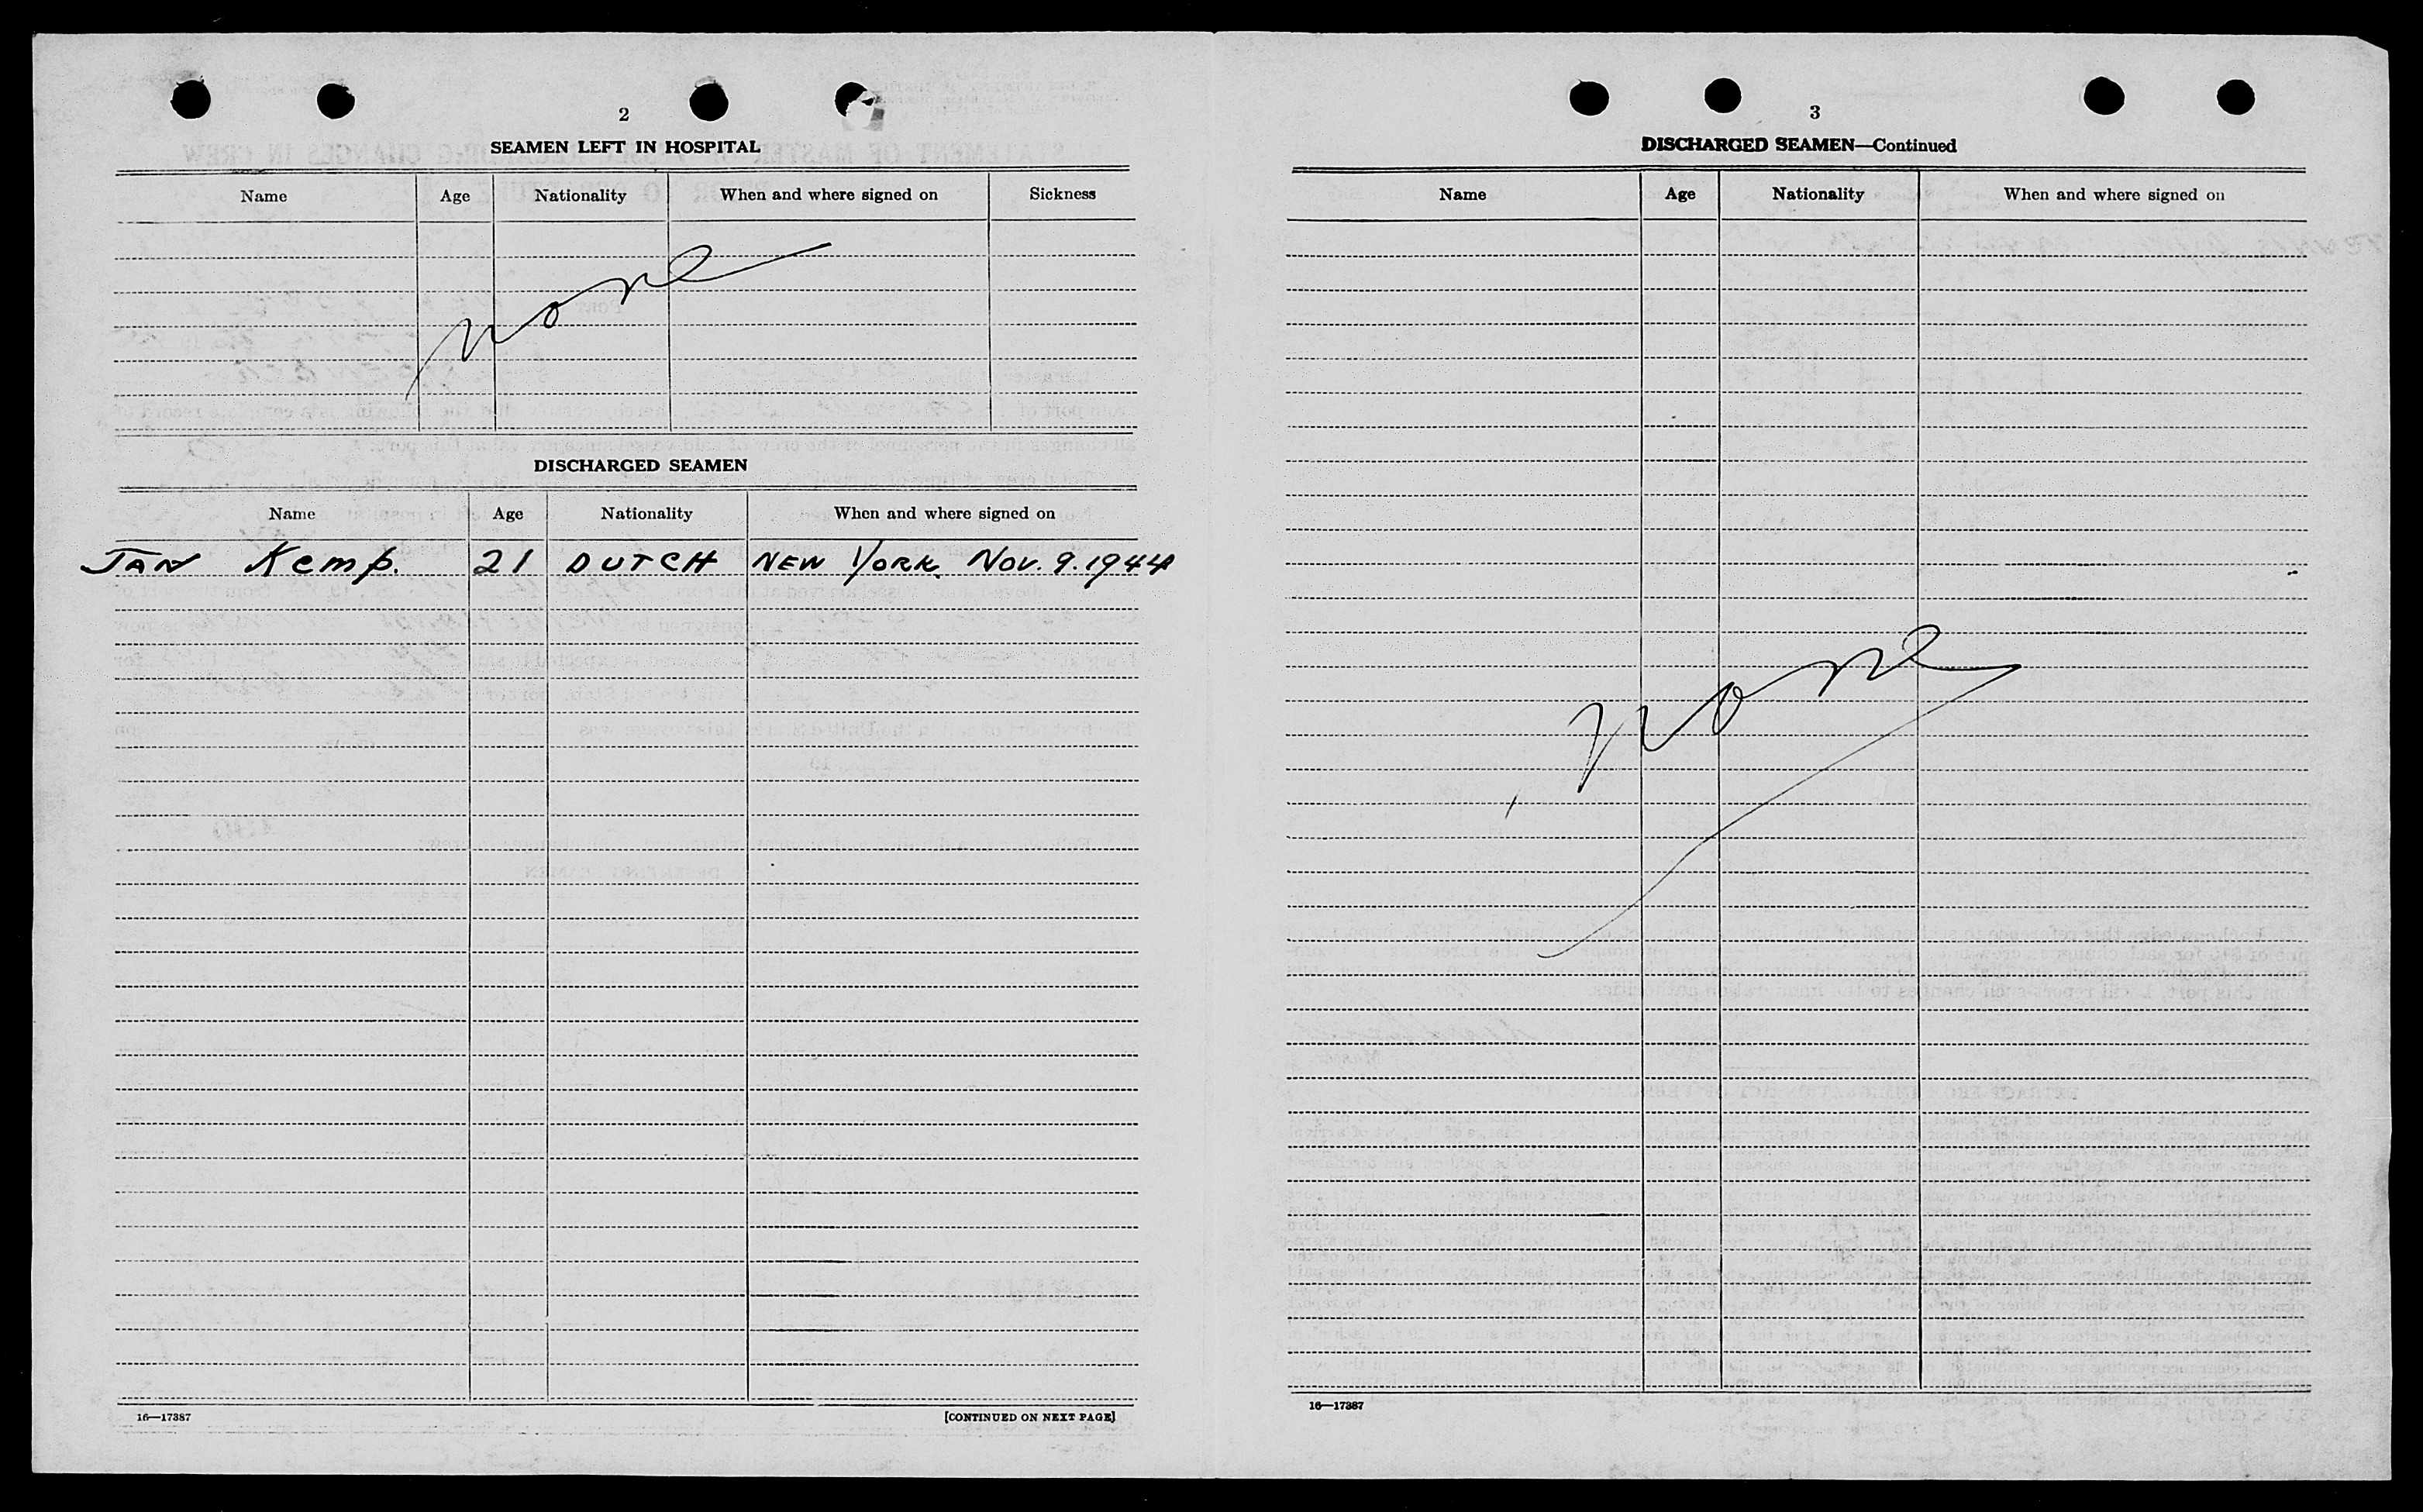 2
SEAMEN LEFT IN HOSPITAL
Name Age Nationality When and where signed on Sickness
None
DISCHARGED SEAMEN
Name Age Nationality When and where signed on
JAN Kemp. 21 DUTCH NEW YORK. NOV. 9. 1944
16—17387 [CONTINUED ON NEXT PAGE]
3
DISCHARGED SEAMEN—Continued
Name Age Nationality When and where signed on
None
16—17387